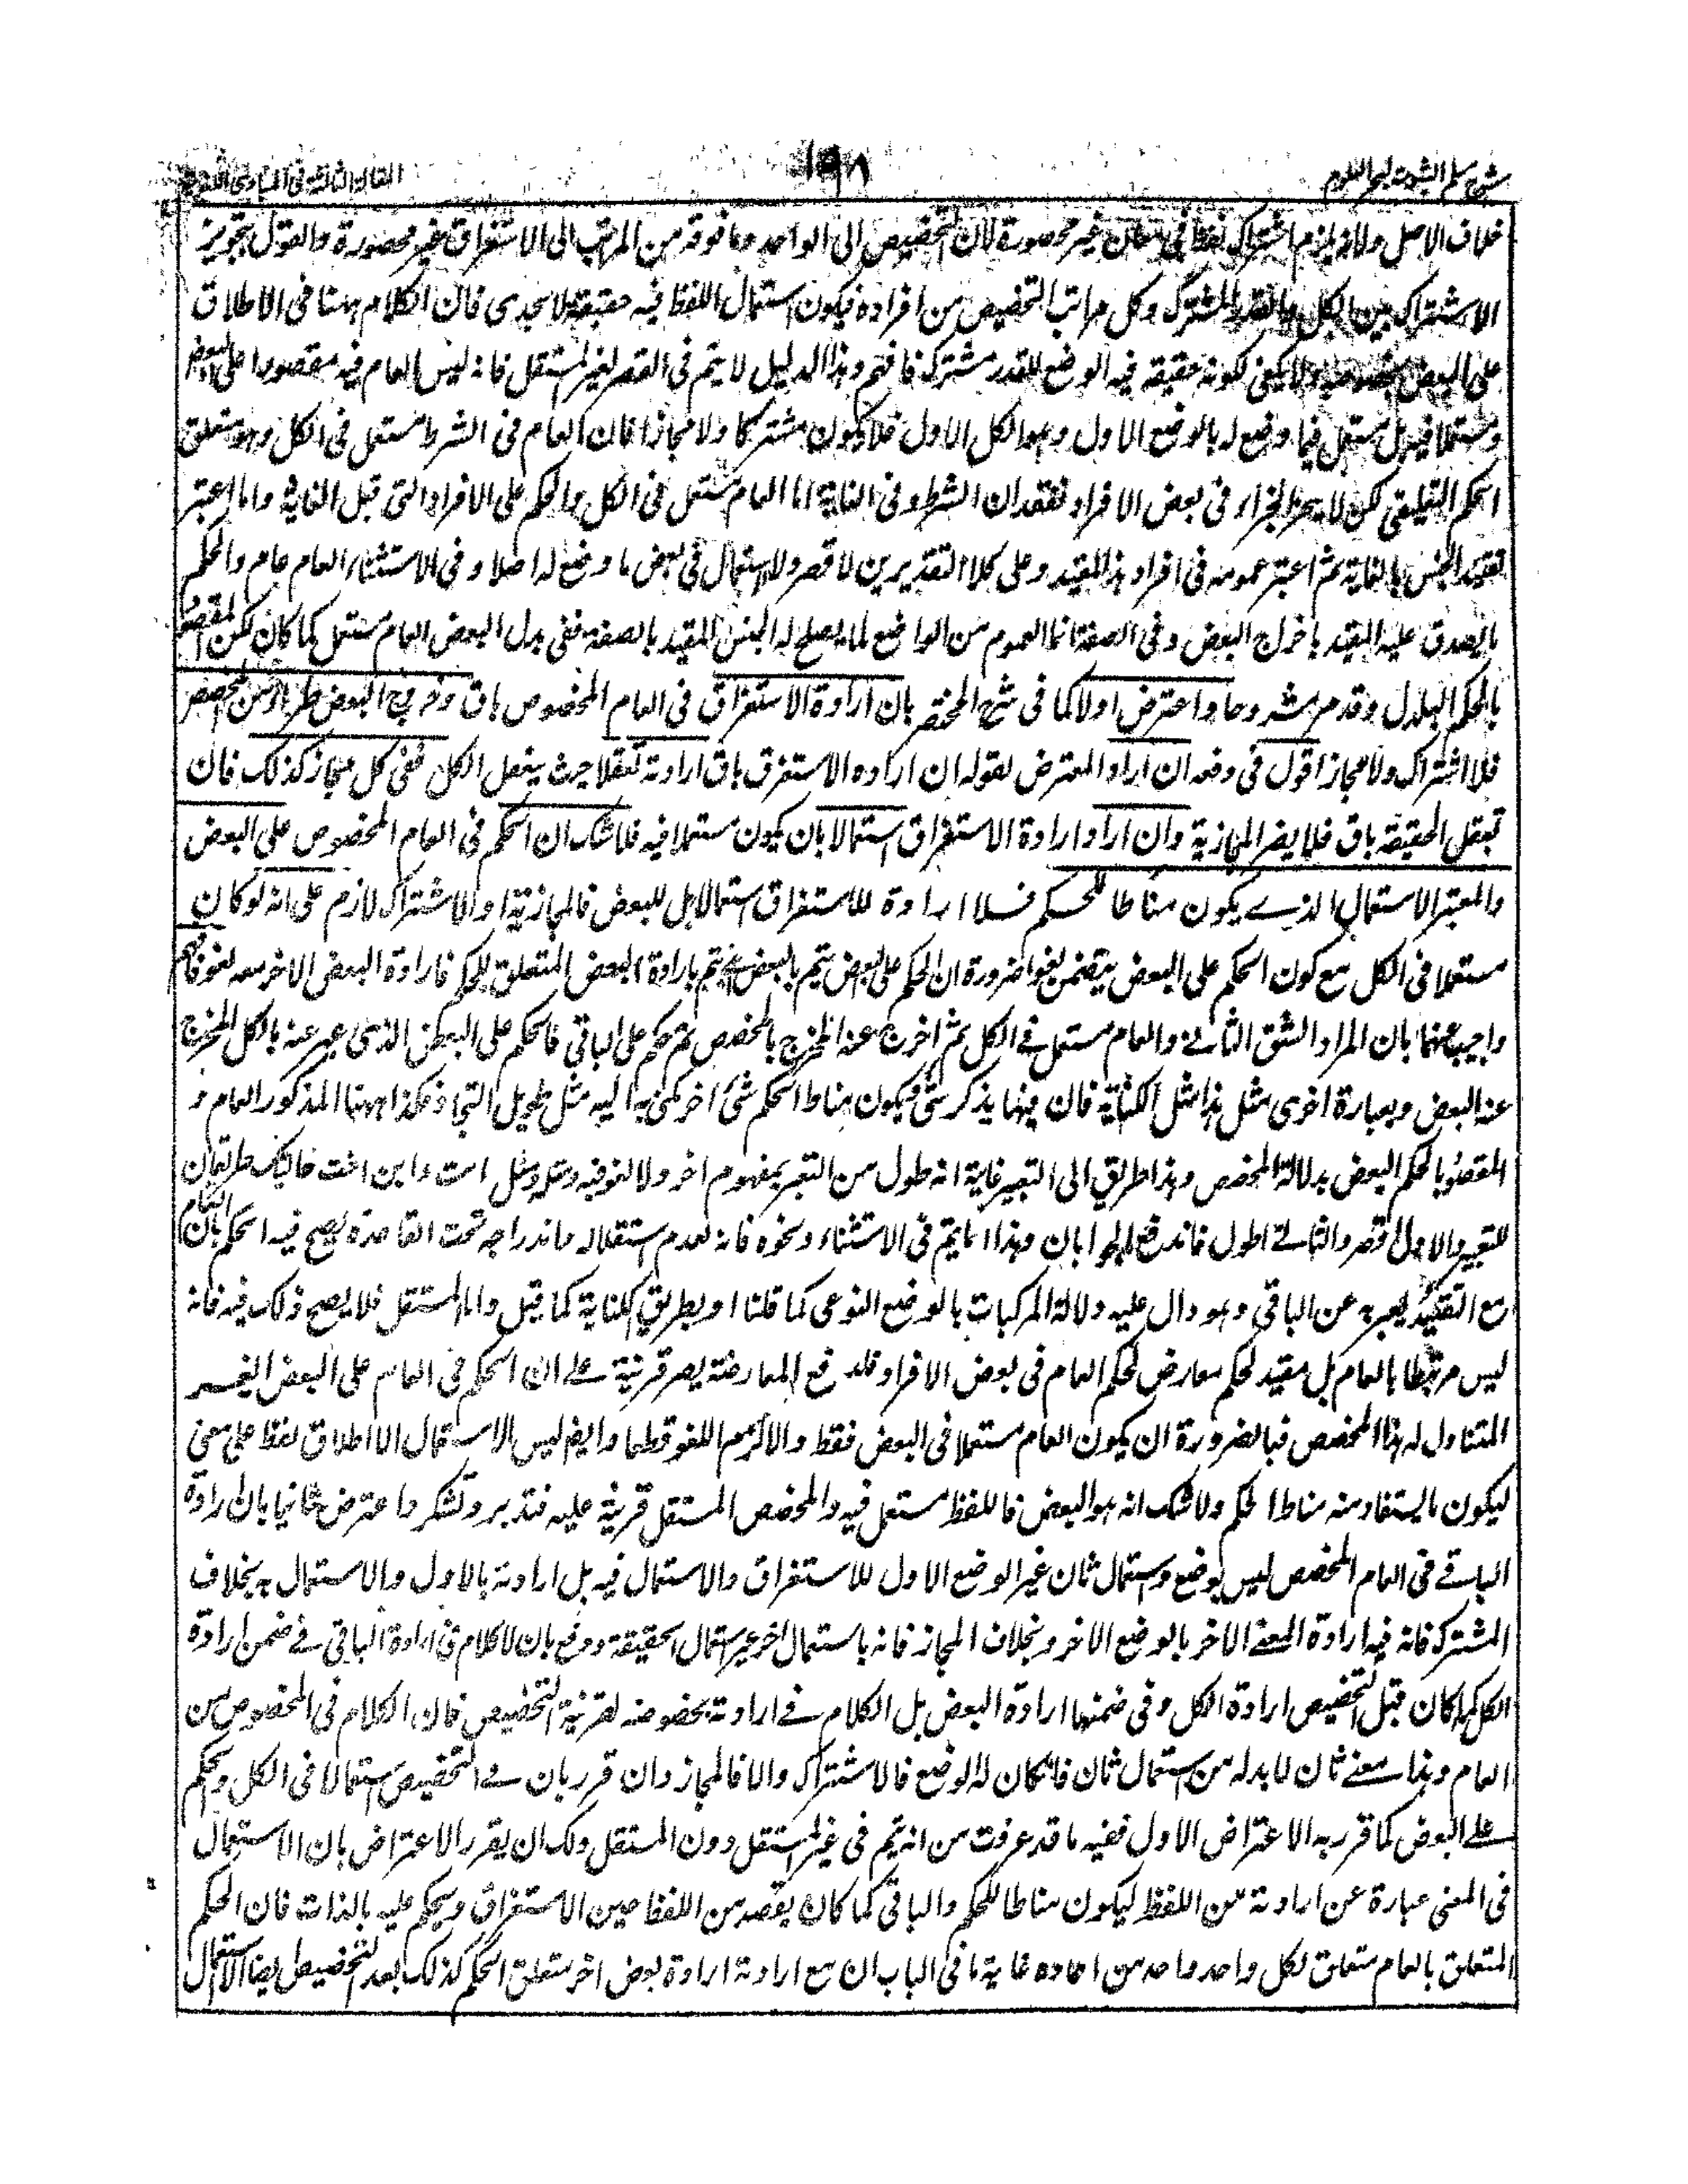 شرح مسلم الثبوت لبحر العلوم
١٩٨
المقالة الثالثة فى المبادى اللغوية
خلاف الاصل ولانه يلزم اشتراك لفظ فى معان غير محصورة لان التخصيص الى الواحد وما فوقه من المراتب الى الاستغراق غير محصورة والقول بتجويز
الاشتراك بين الكل والقدر المشترك وكل مراتب التخصيص من افراده فيكون استعمال اللفظ فيه حقيقة لا يجدى فان الكلام ههنا فى الاطلاق
على البعض بخصوصه ولا يكفى لكونه حقيقة فيه الوضع للقدر مشترك فافهم وهذا الدليل لا يتم فى القصر لغير المستقل فانه ليس العام فيه مقصورا على البعض
ومستعملا فيه بل مستعمل فيما وضع له بالوضع الاول وهو الكل الاول فلا يكون مشتركا ولا مجازا فان العام فى الشرط مستعمل فى الكل وهو متعلق
الحكم التعليقى لكن لا ينجز الجزاء فى بعض الافراد لفقدان الشرط وفى الغاية اما العام مستعمل فى الكل والحكم على الافراد التى قبل الغاية واما اعتبر
تقييد الجنس بالغاية ثم اعتبر عمومه فى افراد هذا المقيد وعلى كلا التقديرين لا قصر ولا استعمال فى بعض ما وضع له اصلا وفى الاستثناء العام عام والحكم
ما يصدق عليه المقيد باخراج البعض وفى الصفة انما العموم من الواضع لما يصلح له الجنس المقيد بالصفة ففى بدل البعض العام مستعمل كما كان لكن المقصود
بالحكم البدل وقد مر مشروحا واعترض اولا كما فى شرح المختصر بان ارادة الاستغراق فى العام المخصوص باق وخروج البعض طار من المخصص
فلا اشتراك ولا مجازا اقول فى دفعه ان اراد المعترض بقوله ان ارادة الاستغراق باق ارادته تعقلا حيث يتعقل الكل ففى كل مجاز كذلك فان
تعقل الحقيقة باق فلا يضر المجازية وان اراد ارادة الاستغراق استعمالا بان يكون مستعملا فيه فلا شك ان الحكم فى العام المخصوص على البعض
والمعتبر الاستعمال الذى يكون مناطا للحكم فلا ارادة للاستغراق استعمالا بل للبعض فالمجازية او الاشتراك لازم على انه لو كان
مستعملا فى الكل مع كون الحكم على البعض يتضمن لغوا ضرورة ان الحكم على البعض يتم بالبعض اى يتم بارادة البعض المتعلق للحكم فارادة البعض الاخر معه لغو فافهم
واجيب عنهما بان المراد الشق الثانى والعام مستعمل فى الكل ثم اخرج عنه المخرج بالمخصص ثم حكم على الباقى فالحكم على البعض الذى عبر عنه بالكل المخرج
عنه البعض وبعبارة اخرى مثل هذا مثل الكناية فان فيها يذكر شئ فيكون مناط الحكم شئ اخر كنى به اليه مثل طويل النجاد فكذا ههنا المذكور العام و
المقصود بالحكم البعض بدلالة المخصص وهذا طريق الى التعبير غاية انه طول من التعبير بمفهوم اخر ولا لغو فيه ومثله ومثل است وابن اخت خاليك طريقان
للتعبير والاول اقصر والثانى اطول فاندفع الجوابان وهذا انما يتم فى الاستثناء ونحوه فانه لعدم استقلاله واندراجه تحت القاعدة يصح فيه الحكم بان العام
مع التقييد يعبر به عن الباقى وهو دال عليه دلالة المركبات بالوضع النوعى كما قلنا او بطريق الكناية كما قيل واما المستقل فلا يصح ذلك فيه فانه
ليس مرتبطا بالعام بل مفيد لحكم معارض لحكم العام فى بعض الافراد فلدفع المعارضة يصر قرينة على ان الحكم فى العام على البعض الغير
المتناول له هذا المخصص فبالضرورة ان يكون العام مستعملا فى البعض فقط والا لزم اللغو قطعا وايضا ليس الاستعمال الا اطلاق لفظ على معنى
ليكون ما يستفاد منه مناط الحكم ولا شك انه هو البعض فاللفظ مستعمل فيه والمخصص المستقل قرينة عليه فتدبر وتشكر واعترض ثانيا بان ارادة
الباقى فى العام المخصص ليس بوضع واستعمال ثان غير الوضع الاول للاستغراق والاستعمال فيه بل ارادته بالاول والاستعمال به بخلاف
المشترك فانه فيه ارادة المعنى الاخر بالوضع الاخر وبخلاف المجاز فانه باستعمال اخر غير استعمال الحقيقة ودفع بان لا كلام فى ارادة الباقى فى ضمن ارادة
الكل كما كان قبل التخصيص ارادة الكل وفى ضمنها ارادة البعض بل الكلام فى ارادته بخصوصه لقرينة التخصيص فان الكلام فى المخصوص من
العام وهذا معنى ثان لا بد له من استعمال ثان فان كان له الوضع فالاشتراك والا فالمجاز وان قرر بان فى التخصيص استعمالا فى الكل وحكم
على البعض كما قرر به الاعتراض الاول ففيه ما قد عرفت من انه يتم فى غير المستقل دون المستقل ولك ان يقرر الاعتراض بان الاستعمال
فى المعنى عبارة عن ارادته من اللفظ ليكون مناطا للحكم والباقى كما كان يقصد من اللفظ حين الاستغراق ويحكم عليه بالذات فان الحكم
المتعلق بالعام متعلق لكل واحد واحد من احاده غاية ما فى الباب ان مع ارادته ارادة بعض اخر متعلق الحكم كذلك بعد التخصيص ايضا الاستعمال